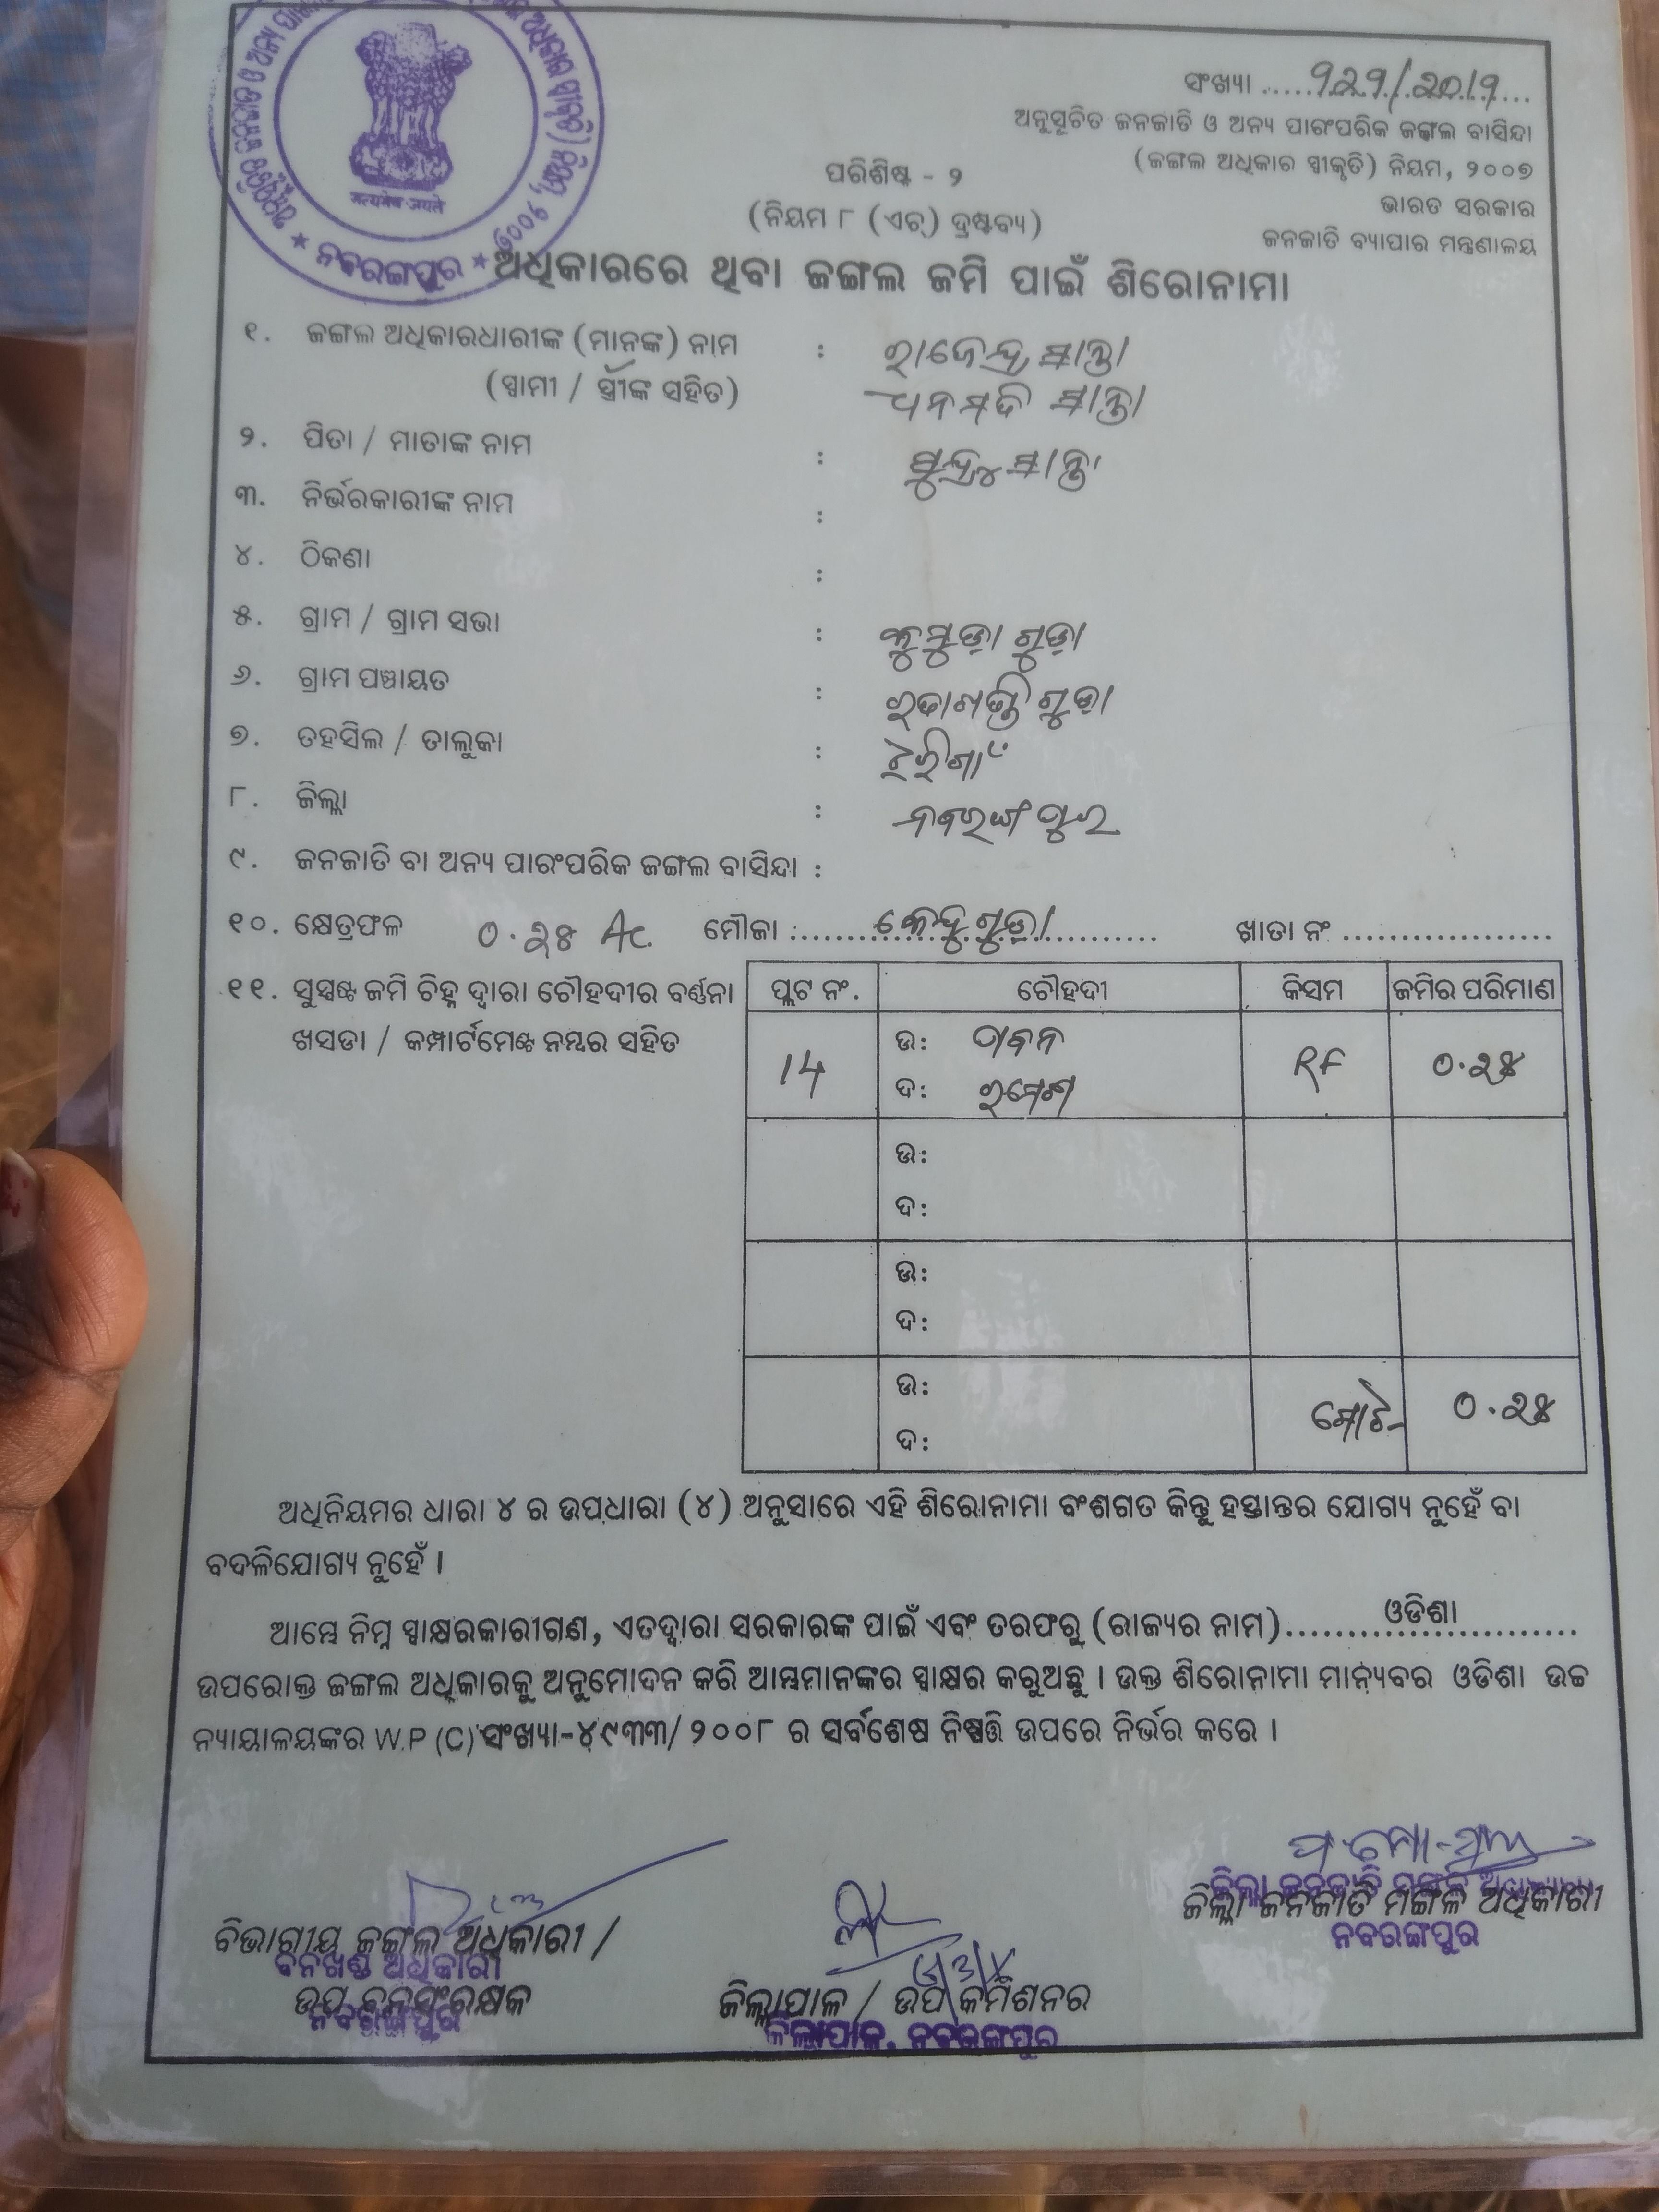 ସଂଖ୍ୟା ..... ୨୨୨/୨୦୧୨
ଅନୁସୂଚିତ ଜନଜାତି ଓ ଅନ୍ୟ ପାରଂପରିକ ଜଙ୍ଗଲ ବାସିନ୍ଦା
(ଜଙ୍ଗଲ ଅଧିକାର ସ୍ୱୀକୃତି) ନିୟମ, ୨୦୦୭
ଭାରତ ସରକାର
ଜନଜାତି ବ୍ୟାପାର ମନ୍ତ୍ରଣାଳୟ
ପରିଶିଷ୍ଟ - ୨
(ନିୟମ ୮ (ଏଚ୍) ଦ୍ରଷ୍ଟବ୍ୟ)
★ ନବରଙ୍ଗପୁର ★
ଅଧିକାରରେ ଥିବା ଜଙ୍ଗଲ ଜମି ପାଇଁ ଶିରୋନାମା
୧. ଜଙ୍ଗଲ ଅଧିକାରଧାରୀଙ୍କ (ମାନଙ୍କ) ନାମ : ରାଜେନ୍ଦ୍ର ସାନ୍ତା
(ସ୍ୱାମୀ / ସ୍ତ୍ରୀଙ୍କ ସହିତ) ଧନମତି ସାନ୍ତା
୨. ପିତା / ମାତାଙ୍କ ନାମ : ସାନ୍ତା
୩. ନିର୍ଭରକାରୀଙ୍କ ନାମ :
୪. ଠିକଣା :
୫. ଗ୍ରାମ / ଗ୍ରାମ ସଭା : ଗୁଡ଼ା
୬. ଗ୍ରାମ ପଞ୍ଚାୟତ : ଗୁଡ଼ା
୭. ତହସିଲ / ତାଲୁକା :
୮. ଜିଲ୍ଲା : ନବରଙ୍ଗପୁର
୯. ଜନଜାତି ବା ଅନ୍ୟ ପାରଂପରିକ ଜଙ୍ଗଲ ବାସିନ୍ଦା :
୧୦. କ୍ଷେତ୍ରଫଳ ୦.୨୫ Ac. ମୌଜା ..... କେନ୍ଦୁଗୁଡ଼ା ..... ଖାତା ନଂ ..................
୧୧. ସୁସ୍ପଷ୍ଟ ଜମି ଚିହ୍ନ ଦ୍ୱାରା ଚୌହଦୀର ବର୍ଣ୍ଣନା
ଖସଡା / କମ୍ପାର୍ଟମେଣ୍ଟ ନମ୍ବର ସହିତ
ପ୍ଲଟ ନଂ. ଚୌହଦୀ କିସମ ଜମିର ପରିମାଣ
14 ଉ: ପବନ RF ୦.୨୫
ଦ: ରମେଶ
ଉ:
ଦ:
ଉ:
ଦ:
ଉ: ମୋଟ ୦.୨୫
ଦ:
ଅଧିନିୟମର ଧାରା ୪ ର ଉପଧାରା (୪) ଅନୁସାରେ ଏହି ଶିରୋନାମା ବଂଶଗତ କିନ୍ତୁ ହସ୍ତାନ୍ତର ଯୋଗ୍ୟ ନୁହେଁ ବା
ବଦଳିଯୋଗ୍ୟ ନୁହେଁ ।
ଆମ୍ଭେ ନିମ୍ନ ସ୍ୱାକ୍ଷରକାରୀଗଣ, ଏତଦ୍ୱାରା ସରକାରଙ୍କ ପାଇଁ ଏବଂ ତରଫରୁ (ରାଜ୍ୟର ନାମ)........ଓଡିଶା........
ଉପରୋକ୍ତ ଜଙ୍ଗଲ ଅଧିକାରକୁ ଅନୁମୋଦନ କରି ଆମ୍ଭମାନଙ୍କର ସ୍ୱାକ୍ଷର କରୁଅଛୁ । ଉକ୍ତ ଶିରୋନାମା ମାନ୍ୟବର ଓଡିଶା ଉଚ୍ଚ
ନ୍ୟାୟାଳୟଙ୍କର W.P (C) ସଂଖ୍ୟା-୪୯୩୩/୨୦୦୮ ର ସର୍ବଶେଷ ନିଷ୍ପତ୍ତି ଉପରେ ନିର୍ଭର କରେ ।
ଜିଲ୍ଲା ଜନଜାତି ମଙ୍ଗଳ ଅଧିକାରୀ
ନବରଙ୍ଗପୁର
ବିଭାଗୀୟ ଜଙ୍ଗଲ ଅଧିକାରୀ /
ବନଖଣ୍ଡ ଅଧିକାରୀ
ଉପ ବନସଂରକ୍ଷକ
ନବରଙ୍ଗପୁର
ଜିଲ୍ଲାପାଳ / ଉପ କମିଶନର
ଜିଲ୍ଲାପାଳ, ନବରଙ୍ଗପୁର